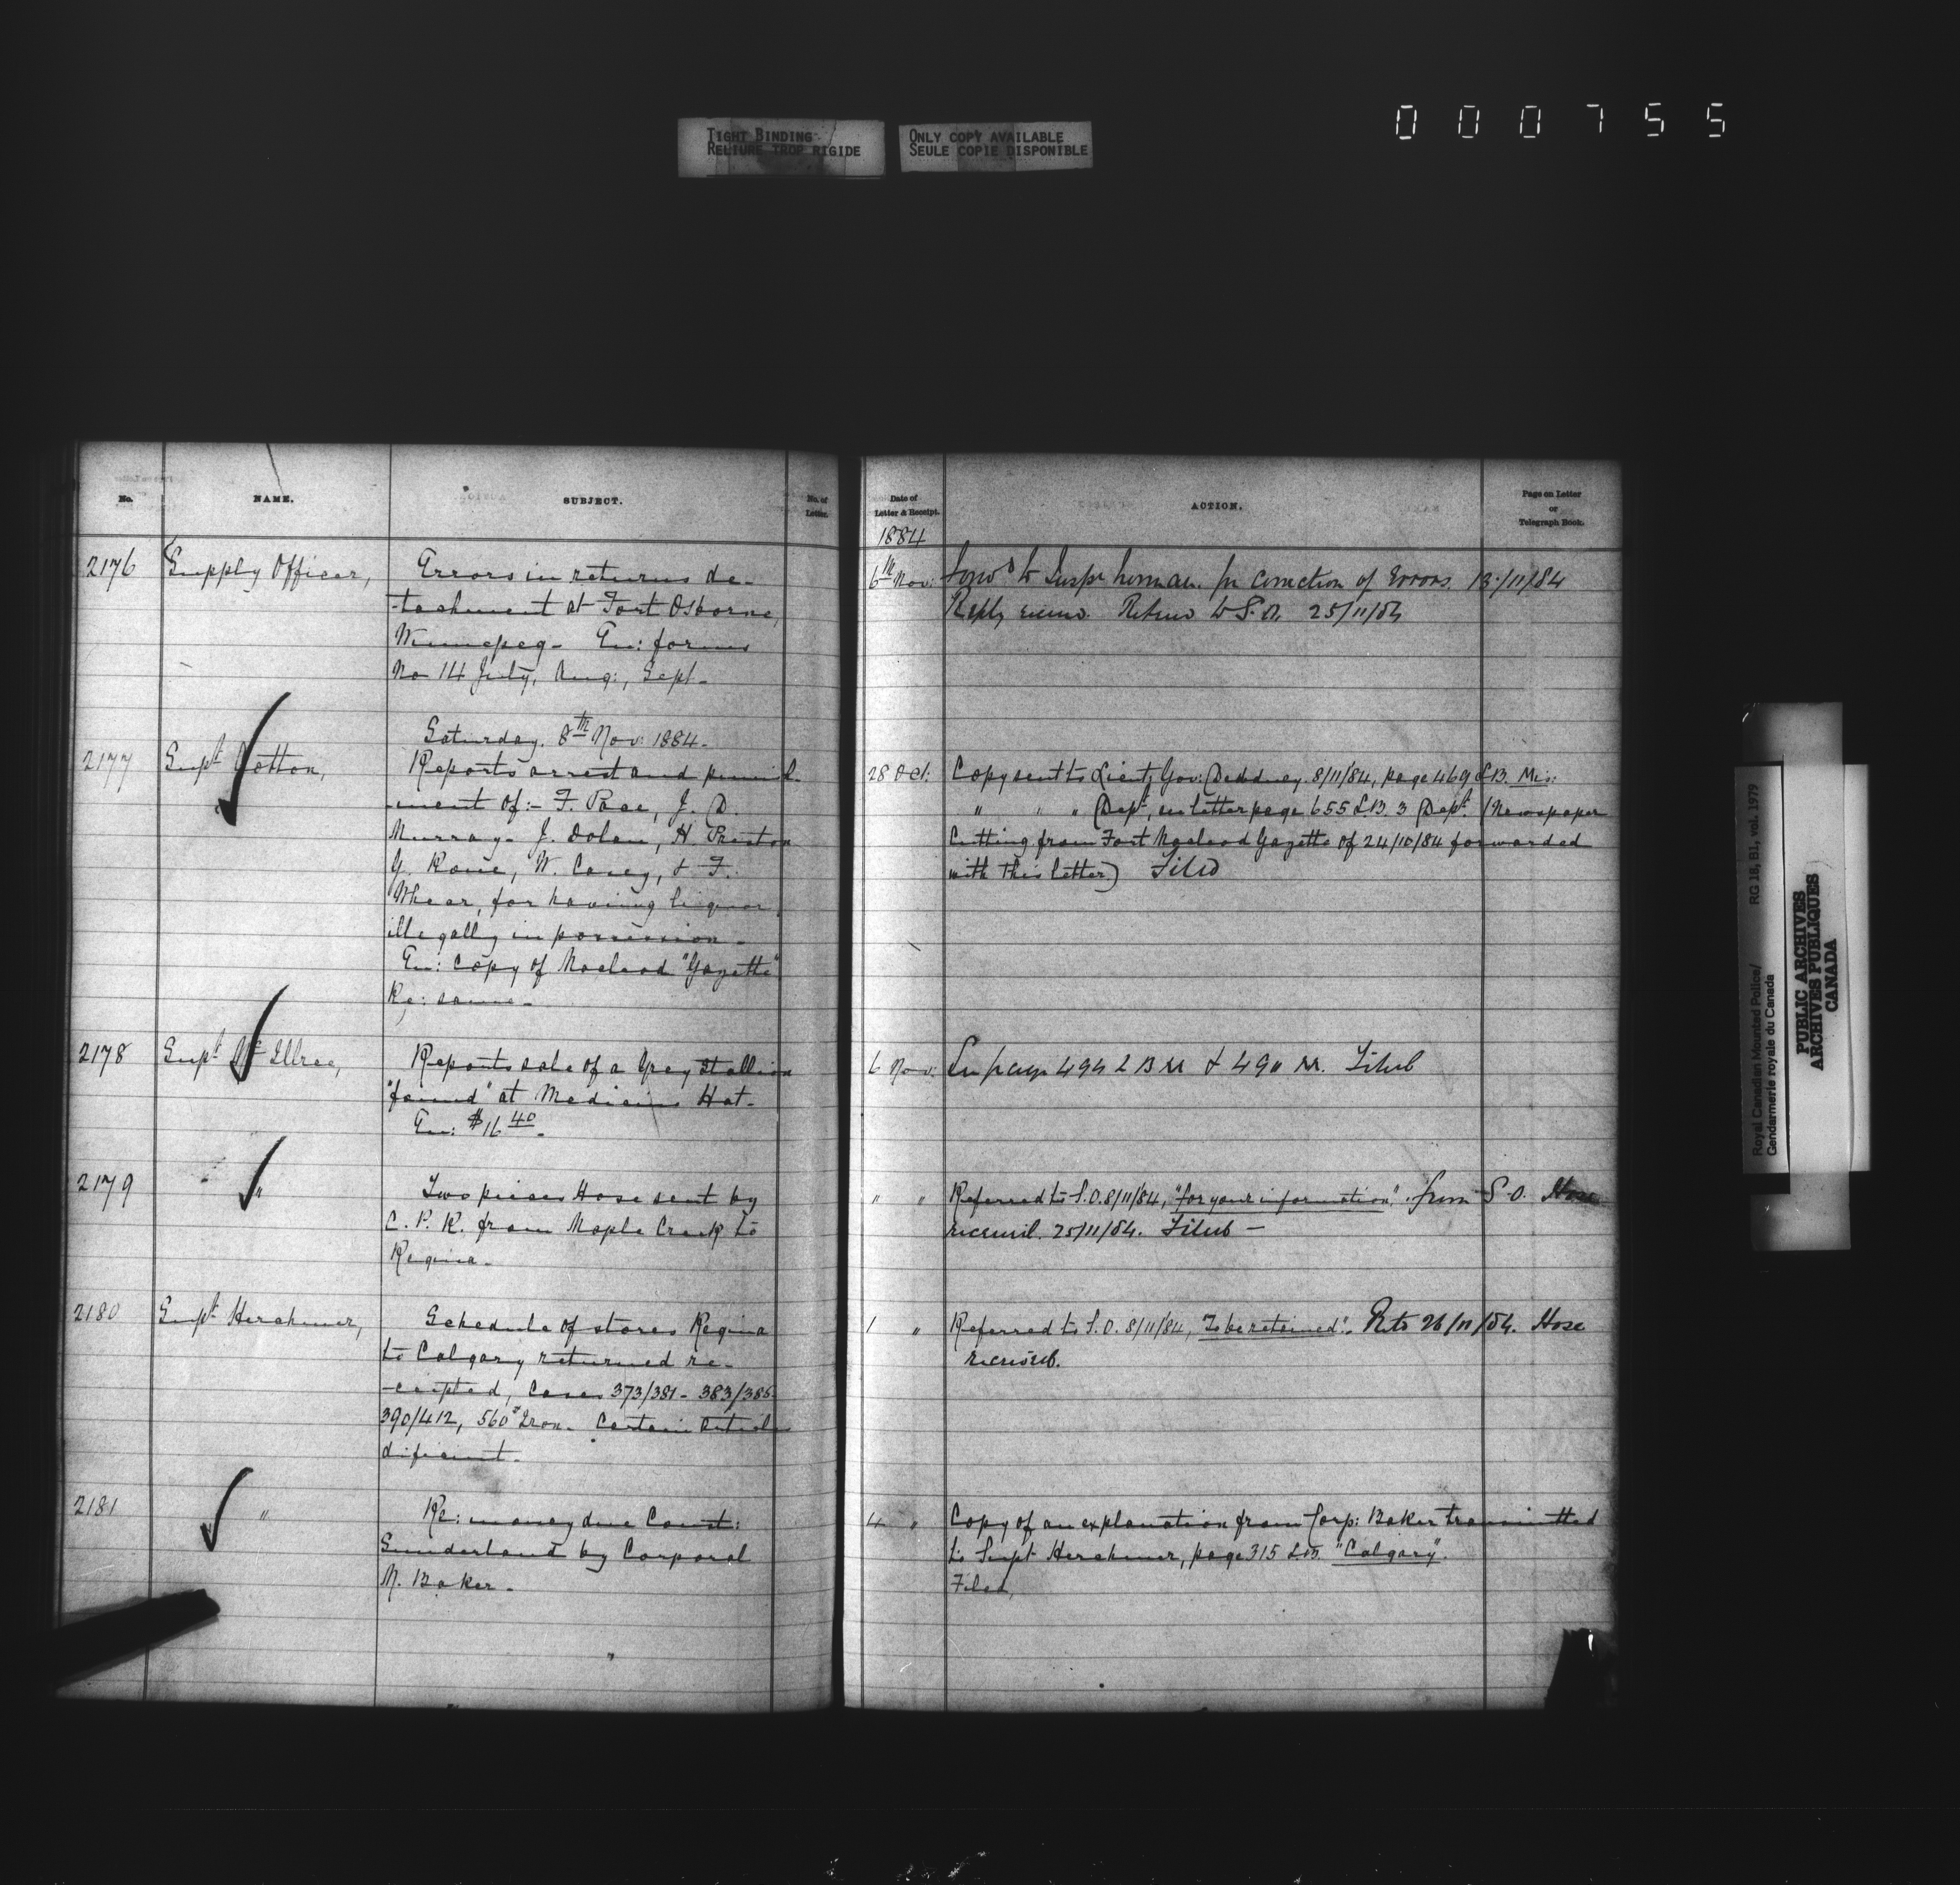 TIGHT BINDING
RELIURE TROP RIGIDE
ONLY COPY AVAILABLE
SEULE COPIE DISPONIBLE
000755
No.
NAME.
SUBJECT.
No. of
Letter.
2176
Supply Officer,
Errors in returns de-
-tachment at Fort Osborne,
Winnepeg - En: forms
No 14 July, Aug:, Sept -
Saturday. 8th Nov: 1884 -
2177
Supt Cotton,
Reports arrest and punish-
-ment of:- F. Pace, J. D.
Murray - J. Dolan, H. Preston
W. Casey, & F.
Whear, for having liquor
illegally in possession -
En: Copy of Macleod "Gazette"
Re: same -
2178
Supt McIllree,
Reports sale of a Grey Stallion
"found" at Medicine Hat -
En: $16 40 -
2179
"
Two pieces Hose sent by
C. P. R. from Maple Creek to
Regina -
2180
Supt Herchmer,
Schedule of stores Regina
to Calgary returned re-
-ceipted, Cases 373/381 - 383/385
390/412, 560# Iron - Certain articles
dificient -
2181
"
Re: money due Const:
Sunderland by Corporal
Baker -
Date of
Letter & Receipt.
ACTION.
Page on Letter
or
Telegraph Book.
1884
6th Nov:
Forwd to Inspr for correction of Errors. 13/11/84
Reply Return to S.O. 25/11/84
28 Oct:
Copy sent to Lieut Gov: Dewdney. 8/11/84, page 469 L.B. Mis:
" " " Dept, in letter page 655 L.B. 3 Dept. (Newspaper
Cutting from Fort Macleod Gazette of 24/10/84 forwarded
with this letter) Filed
6 Nov:
page 494 L B & 490 Filed
" "
Referred to S.O. 8/11/84, "for your information". from S.O. Hose
received. 25/11/84. Filed -
1 "
Referred to S.O. 8/11/84, "To be retained". 26/11/84. Hose
received.
4 "
Copy of an explanation from Corp: Baker transmitted
to Supt Herchmer, page 315 L.B. "Calgary".
Filed,
Royal Canadian Mounted Police/
Gendarmerie royale du Canada
RG 18, B1, vol. 1979
PUBLIC ARCHIVES
ARCHIVES PUBLIQUES
CANADA